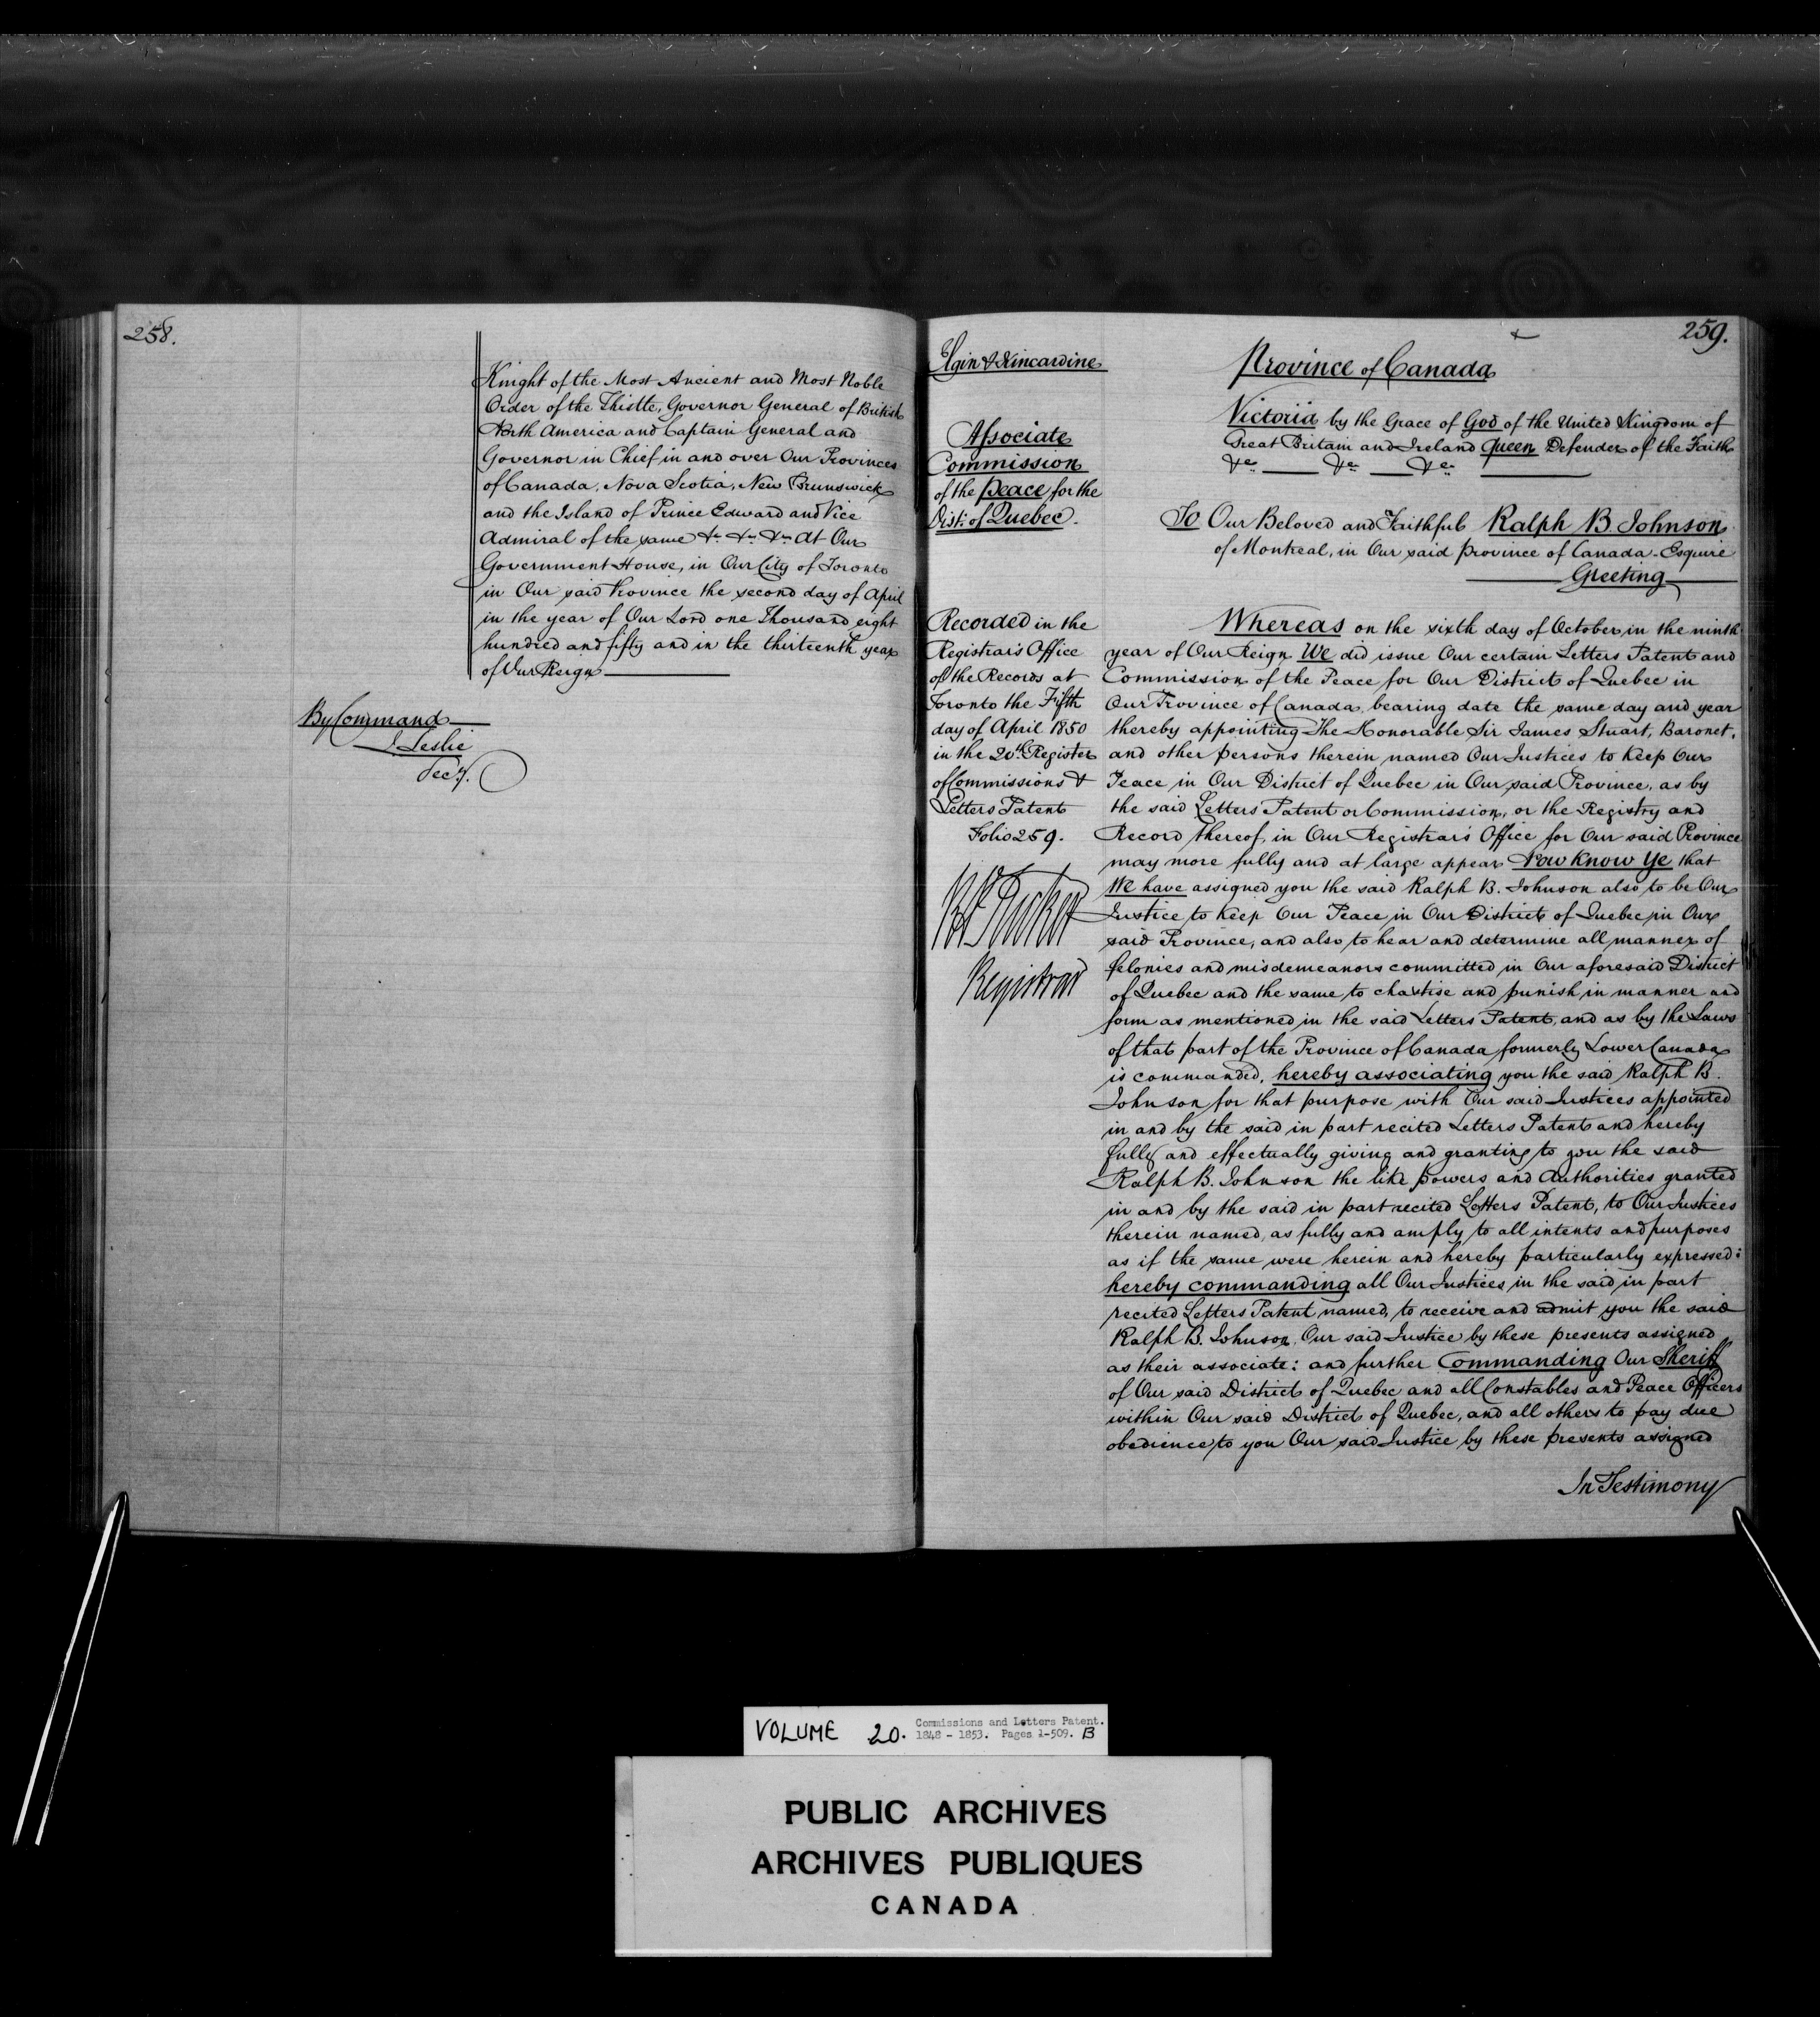 258.
Knight of the Most Ancient and Most Noble
Order of the Thistle, Governor General of British
North America and Captain General and
Governor in Chief in and over Our Provinces
of Canada, Nova Scotia, New Brunswick
and the Island of Prince Edward and Vice
Admiral of the same &c &c &c At Our
Government House, in Our City of Toronto
in Our said Province the second day of April
in the year of Our Lord one Thousand eight
hundred and fifty and in the thirteenth year
of Our Reign
By Command
J Leslie
Secy.
259.
Elgin & Kincardine
Associate
Commission
of the Peace for the
Dist: of Quebec.
Recorded in the
Registrar's Office
of the Records at
Toronto the Fifth
day of April 1850
in the 20th Register
of Commissions &
Letters Patent
Folio 259.
Registrar
Province of Canada
Victoria by the Grace of God of the United Kingdom of
Great Britain and Ireland Queen Defender of the Faith
&c &c &c
To Our Beloved and Faithful Ralph B Johnson
of Montreal, in Our said province of Canada - Esquire
Greeting
Whereas on the sixth day of October in the ninth
year of Our Reign We did issue Our certain Letters Patent and
Commission of the Peace for Our District of Quebec in
Our Province of Canada bearing date the same day and year
thereby appointing The Honorable Sir James Stuart, Baronet,
and other persons therein named Our Justices to Keep Our
Peace in Our District of Quebec in Our said Province, as by
the said Letters Patent or Commission, or the Registry and
Record thereof, in Our Registrar's Office for Our said Province
may more fully and at large appear Now Know Ye that
We have assigned you the said Ralph B. Johnson also to be Our
Justice to Keep Our Peace in Our District of Quebec in Our
said Province, and also to hear and determine all manner of
felonies and misdemeanors committed in Our aforesaid District
of Quebec and the same to chastise and punish in manner and
form as mentioned in the said Letters Patent, and as by the Laws
of that part of the Province of Canada formerly Lower Canada
is commanded, hereby associating you the said Ralph B.
Johnson for that purpose with Our said Justices appointed
in and by the said in part recited Letters Patent and hereby
fully and effectually giving and granting to you the said
Ralph B. Johnson the like powers and Authorities granted
in and by the said in part recited Letters Patent, to Our Justices
therein named, as fully and amply to all intents and purposes
as if the same were herein and hereby particularly expressed:
hereby commanding all Our Justices in the said in part
recited Letters Patent named, to receive and admit you the said
Ralph B. Johnson, Our said Justice by these presents assigned
as their associate: and further Commanding Our Sheriff
of Our said District of Quebec and all Constables and Peace Officers
within Our said District of Quebec, and all others to pay due
obedience to you Our said Justice by these presents assigned
In Testimony
VOLUME 20. Commissions and Letters Patent.
1848 - 1853. Pages 1-509. B
PUBLIC ARCHIVES
ARCHIVES PUBLIQUES
CANADA